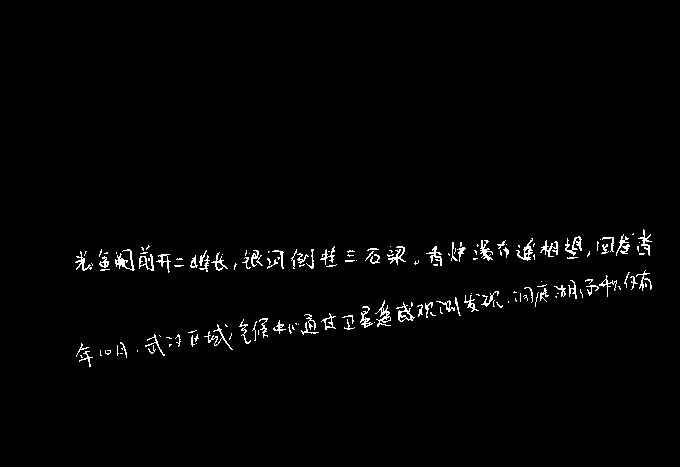 光金阙前开二峰长，银河倒挂三石梁。香炉瀑布遥相望，回崖沓
年10月，武汉区域气候中心通过卫星遥感观测发现，洞庭湖面积仅有